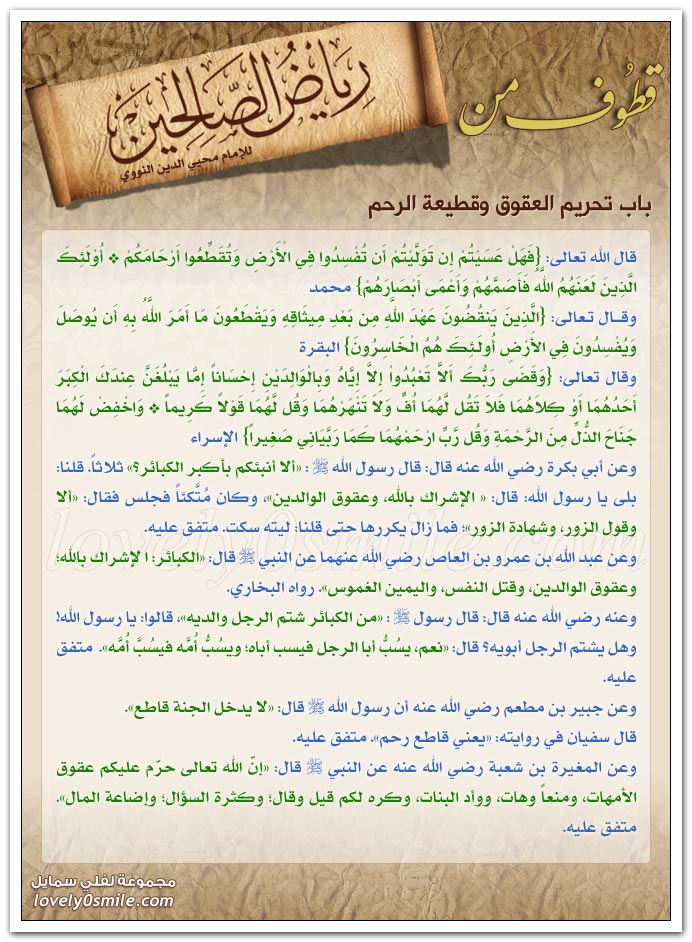 قطوف من
رياض الصالحين
للإمام محيي الدين النووي
باب تحريم العقوق وقطيعة الرحم
قال الله تعالى: {فَهَلْ عَسَيْتُمْ إِن تَوَلَّيْتُمْ أَن تُفْسِدُوا فِي الْأَرْضِ وَتُقَطِّعُوا أَرْحَامَكُمْ * أُوْلَئِكَ
الَّذِينَ لَعَنَهُمُ اللَّهُ فَأَصَمَّهُمْ وَأَعْمَى أَبْصَارَهُمْ} محمد
وقـال تعالى: {الَّذِينَ يَنقُضُونَ عَهْدَ اللَّهِ مِن بَعْدِ مِيثَاقِهِ وَيَقْطَعُونَ مَا أَمَرَ اللَّهُ بِهِ أَن يُوصَلَ
وَيُفْسِدُونَ فِي الأَرْضِ أُولَئِكَ هُمُ الْخَاسِرُونَ} البقرة
وقال تعالى: {وَقَضَى رَبُّكَ أَلاَّ تَعْبُدُواْ إِلاَّ إِيَّاهُ وَبِالْوَالِدَيْنِ إِحْسَاناً إِمَّا يَبْلُغَنَّ عِندَكَ الْكِبَرَ
أَحَدُهُمَا أَوْ كِلاَهُمَا فَلاَ تَقُل لَّهُمَا أُفٍّ وَلَا تَنْهَرْهُمَا وَقُل لَّهُمَا قَوْلاً كَرِيماً * وَاخْفِضْ لَهُمَا
جَنَاحَ الذُّلِّ مِنَ الرَّحْمَةِ وَقُل رَّبِّ ارْحَمْهُمَا كَمَا رَبَّيَانِي صَغِيراً} الإسراء
وعن أبي بكرة رضي الله عنه قال: قال رسول الله ﷺ : «ألا أنبئكم بأكبر الكبائر؟» ثلاثاً. قلنا:
بلى يا رسول الله: قال: « الإشراك بالله، وعقوق الوالدين»، وكان مُتَّكئاً فجلس فقال: «ألا
وقول الزور، وشهادة الزور»؛ فما زال يكررها حتى قلنا: ليته سكت. متفق عليه.
وعن عبد الله بن عمرو بن العاص رضي الله عنهما عن النبي ﷺ قال: «الكبائر: ا لإشراك بالله؛
وعقوق الوالدين، وقتل النفس، واليمين الغموس». رواه البخاري.
وعنه رضي الله عنه قال: قال رسول ﷺ : «من الكبائر شتم الرجل والديه»، قالوا: يا رسول الله!
وهل يشتم الرجل أبويه؟ قال: «نعم، يسُبُّ أبا الرجل فيسب أباه؛ ويسبُّ أُمَّه فيسُبَّ أُمَّه». متفق
عليه.
وعن جبير بن مطعم رضي الله عنه أن رسول الله ﷺ قال: «لا يدخل الجنة قاطع».
قال سفيان في روايته: «يعني قاطع رحم». متفق عليه.
وعن المغيرة بن شعبة رضي الله عنه عن النبي ﷺ قال: «إنّ الله تعالى حرّم عليكم عقوق
الأمهات، ومنعاً وهات، ووأد البنات، وكره لكم قيل وقال؛ وكثرة السؤال؛ وإضاعة المال».
متفق عليه.
lovely0smile.com
مجموعة لفلي سمايل
lovely0smile.com